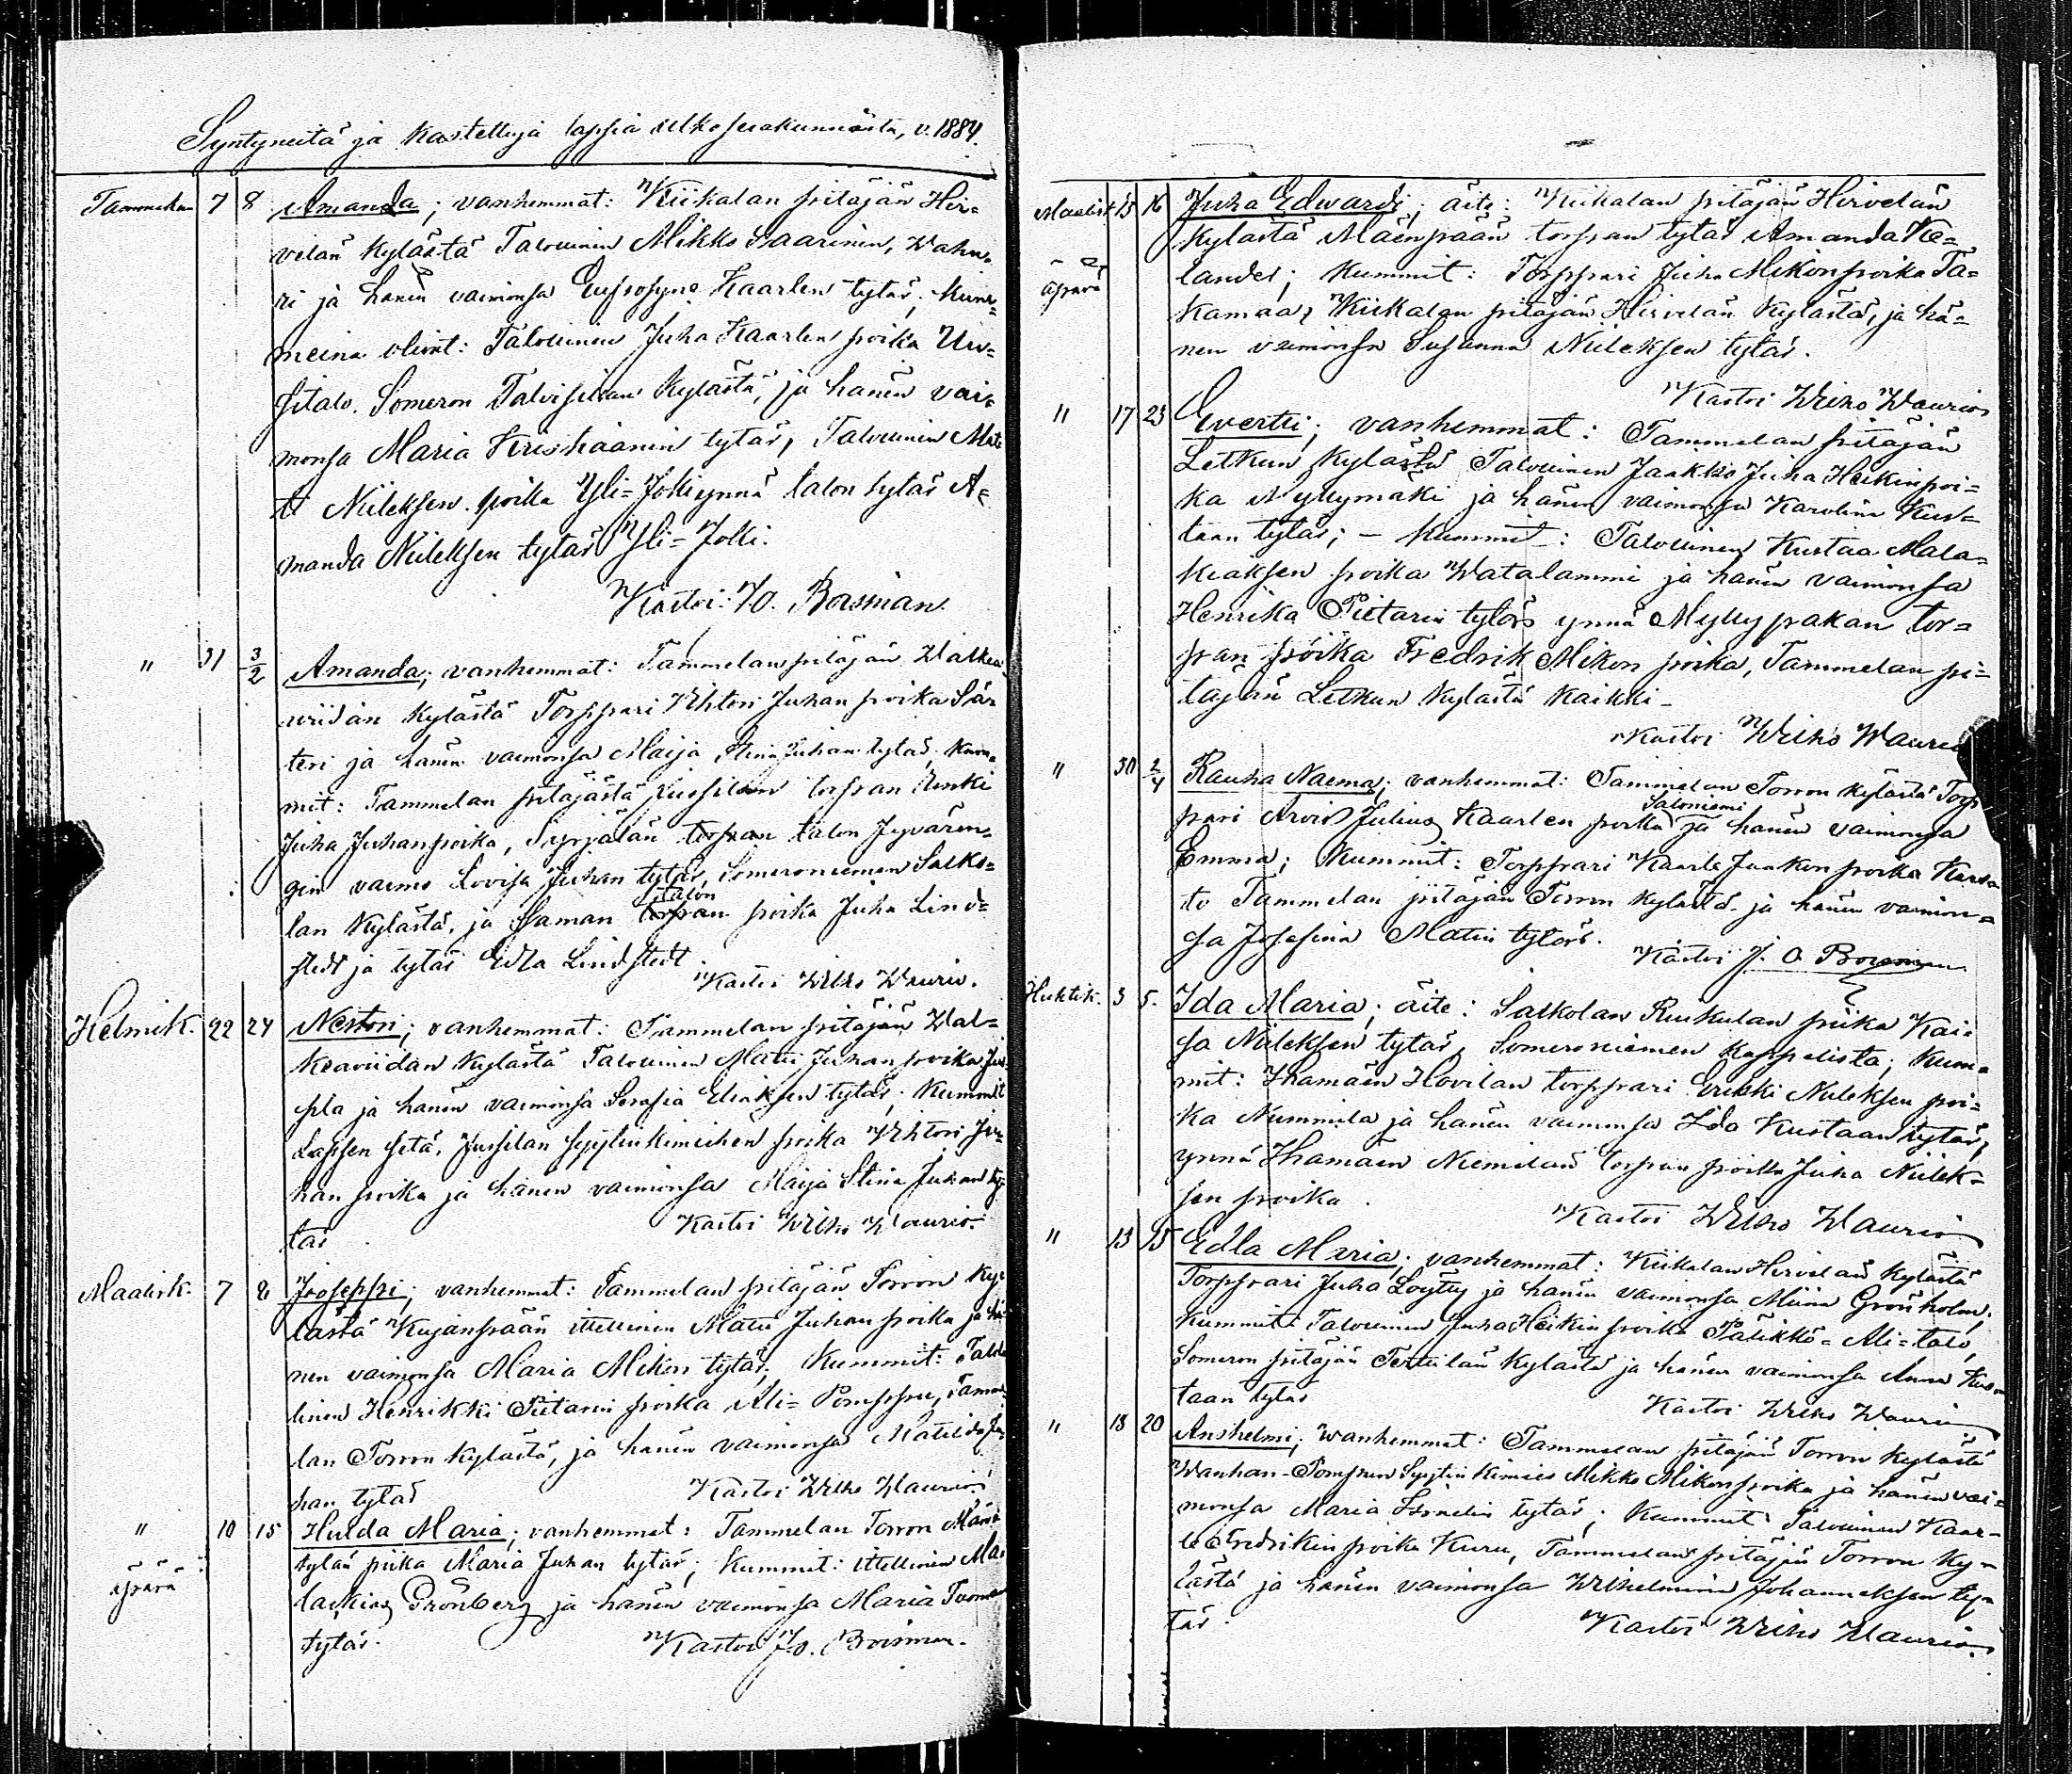 Syntyneitä ja kastettuja lapsia ulkoseurakunnista, v. 1884.
Tammeku 7 8 Amanda; vanhemmat: Kiikalan pitäjän Hir=
velän kylästä Talollinen Mikko Saarinen, Wahn=
ri ja hänen vaimonsa Eufrosyne Kaarlen tytär; kum=
meina olivat: Talollinen Juha Kaarlen poika Uu=
sitalo. Someron Talvisillan kylästä, ja hänen vai=
monsa Maria Kristiaanin tytär, Talollinen Mat
ti Niileksen poika Yli=Joki ynnä talon tytär A=
manda Niileksen tytär Yli=Joki.
Kastoi: J.O. Bosman.
" 31 3/2 Amanda; vanhemmat: Tammelan pitäjän Walkea
wiidan kylästä Torppari Wihtori Juhan poika Sän
teri ja hänen vaimonsa Maija Stina Juhan tytär, kum=
mit: Tammelan pitäjästä Jussilan torpan renki
Juha Juhanpoika, Syrjälän torpan talon Jyvären=
gin vaimo Lovisa Juhan tytär, Someroniemen Salko=
lan kylästä, ja Saman torpan talon poika Juha Lind=
stedt ja tytär Edla Lindstedt.
Kastoi Wilho Waurio.
Helmik. 22 24 Nestori; vanhemmat: Tammelan pitäjän Wal=
keaviidan kylästä Talollinen Matti Juhan poika Jus
sila ja hänen vaimonsa Serafia Eliaksen tytär; kummit
Lapsen setä, Jussilan syytinkimiehen poika Wihtori Ju=
han poika ja hänen vaimonsa Maija Stina Juhan ty=
tär Kastoi Wilho Waurio.
Maalisk. 7 8 Joseppi; vanhemmat: Tammelan pitäjän Torron ky=
lästä Kujanpään ittellinen Matti Juhan poika ja hä
nen vaimonsa Maria Mikon tytär; Kummit: Talol
linen Henrikki Pietarin poika Ali=Pomppu, Tamme
lan Torron kylästä, ja hänen vaimonsa Matilda Ju
han tytär Kastoi Wilho Waurio.
" 10 15 Hulda Maria; vanhemmat: Tammelan Torron
äpärä tylän piika Maria Juhan tytär; kummit: ittellinen Ma=
lakias Grönberg ja hänen vaimonsa Maria Tuoman
tytär. Kastoi J.O. Bosman.
Maalisk 15 16 Juha Edwardi; äite: Kiikalan pitäjän Hirvelän
kylästä Mäenpään torpan tytär Amanda Ke=
äpärä lander; kummit: Torppari Juha Mikonpoika Ta=
kamaa, Kiikalan pitäjän Hirvelän kylästä, ja hä=
nen vaimonsa Susanna Niileksen tytär.
Kastoi Wilho Waurio
" 17 23 Evertti; vanhemmat: Tammelan pitäjän
Letkun kylästä Talollinen Jaakko Juha Heikin poi=
ka Myllymäki ja hänen vaimonsa Karolina Kus=
taan tytär; - Kummit: Talollinen Kustaa Mala=
kiaksen poika Watalammi ja hänen vaimonsa
Henrika Pietarin tytär ynnä Myllypakan tor=
pan poika Fredrik Mikon poika, Tammelan pi=
täjän Letkun kylästä kaikki -
Kastoi Wilho Waurio
" 30 2/4 Rauha Naema; vanhemmat: Tammelan Torron kylästä Torp
pari Arvid Julius Kaarlen poika Saloniemi ja hänen vaimonsa
Emma; Kummit: Torppari Kaarle Jaakon poika
Tammelan pitäjän Torron kylästä ja hänen vaimon=
sa Josefina Matin tytär.
Kastoi J. O. Bosman
Huhtik. 3 5. Ida Maria; äite: Salkolan Ruskulan piika Kai=
sa Niileksen tytär, Someroniemen kappelista; kum=
mit: Ihamäen Hovilan torppari Erikki Niileksen poi=
ka Nummila ja hänen vaimonsa Ida Kustaan tytär,
ynnä Ihamäen Niemilän torpan poika Juha Niilek=
sen poika.
Kastoi Wilho Waurio
" 13 15 Edla Maria; vanhemmat: Kiikalan Hirvelän kylästä
Torppari Juha Löytty ja hänen vaimonsa Miina Grönholm;
kummit: Talollinen Juha Heikin poika Pälikkö=Ali=talo,
Someron pitäjän Terttilän kylästä ja hänen vaimonsa Anna Kus=
taan tytär
Kastoi Wilho Waurio
" 18 20 Anshelmi; wanhemmat: Tammelan pitäjän Torron kylästä
Wanhan-Pompun Syytinkimies Mikko Mikonpoika ja hänen vai=
monsa Maria tytär; Kummit Talollinen Kaar=
le Fredrikin poika Kuru, Tammelan pitäjän Torron ky=
lästä ja hänen vaimonsa Wilhelmina Johanneksen ty=
tär.
Kastoi Wilho Waurio.